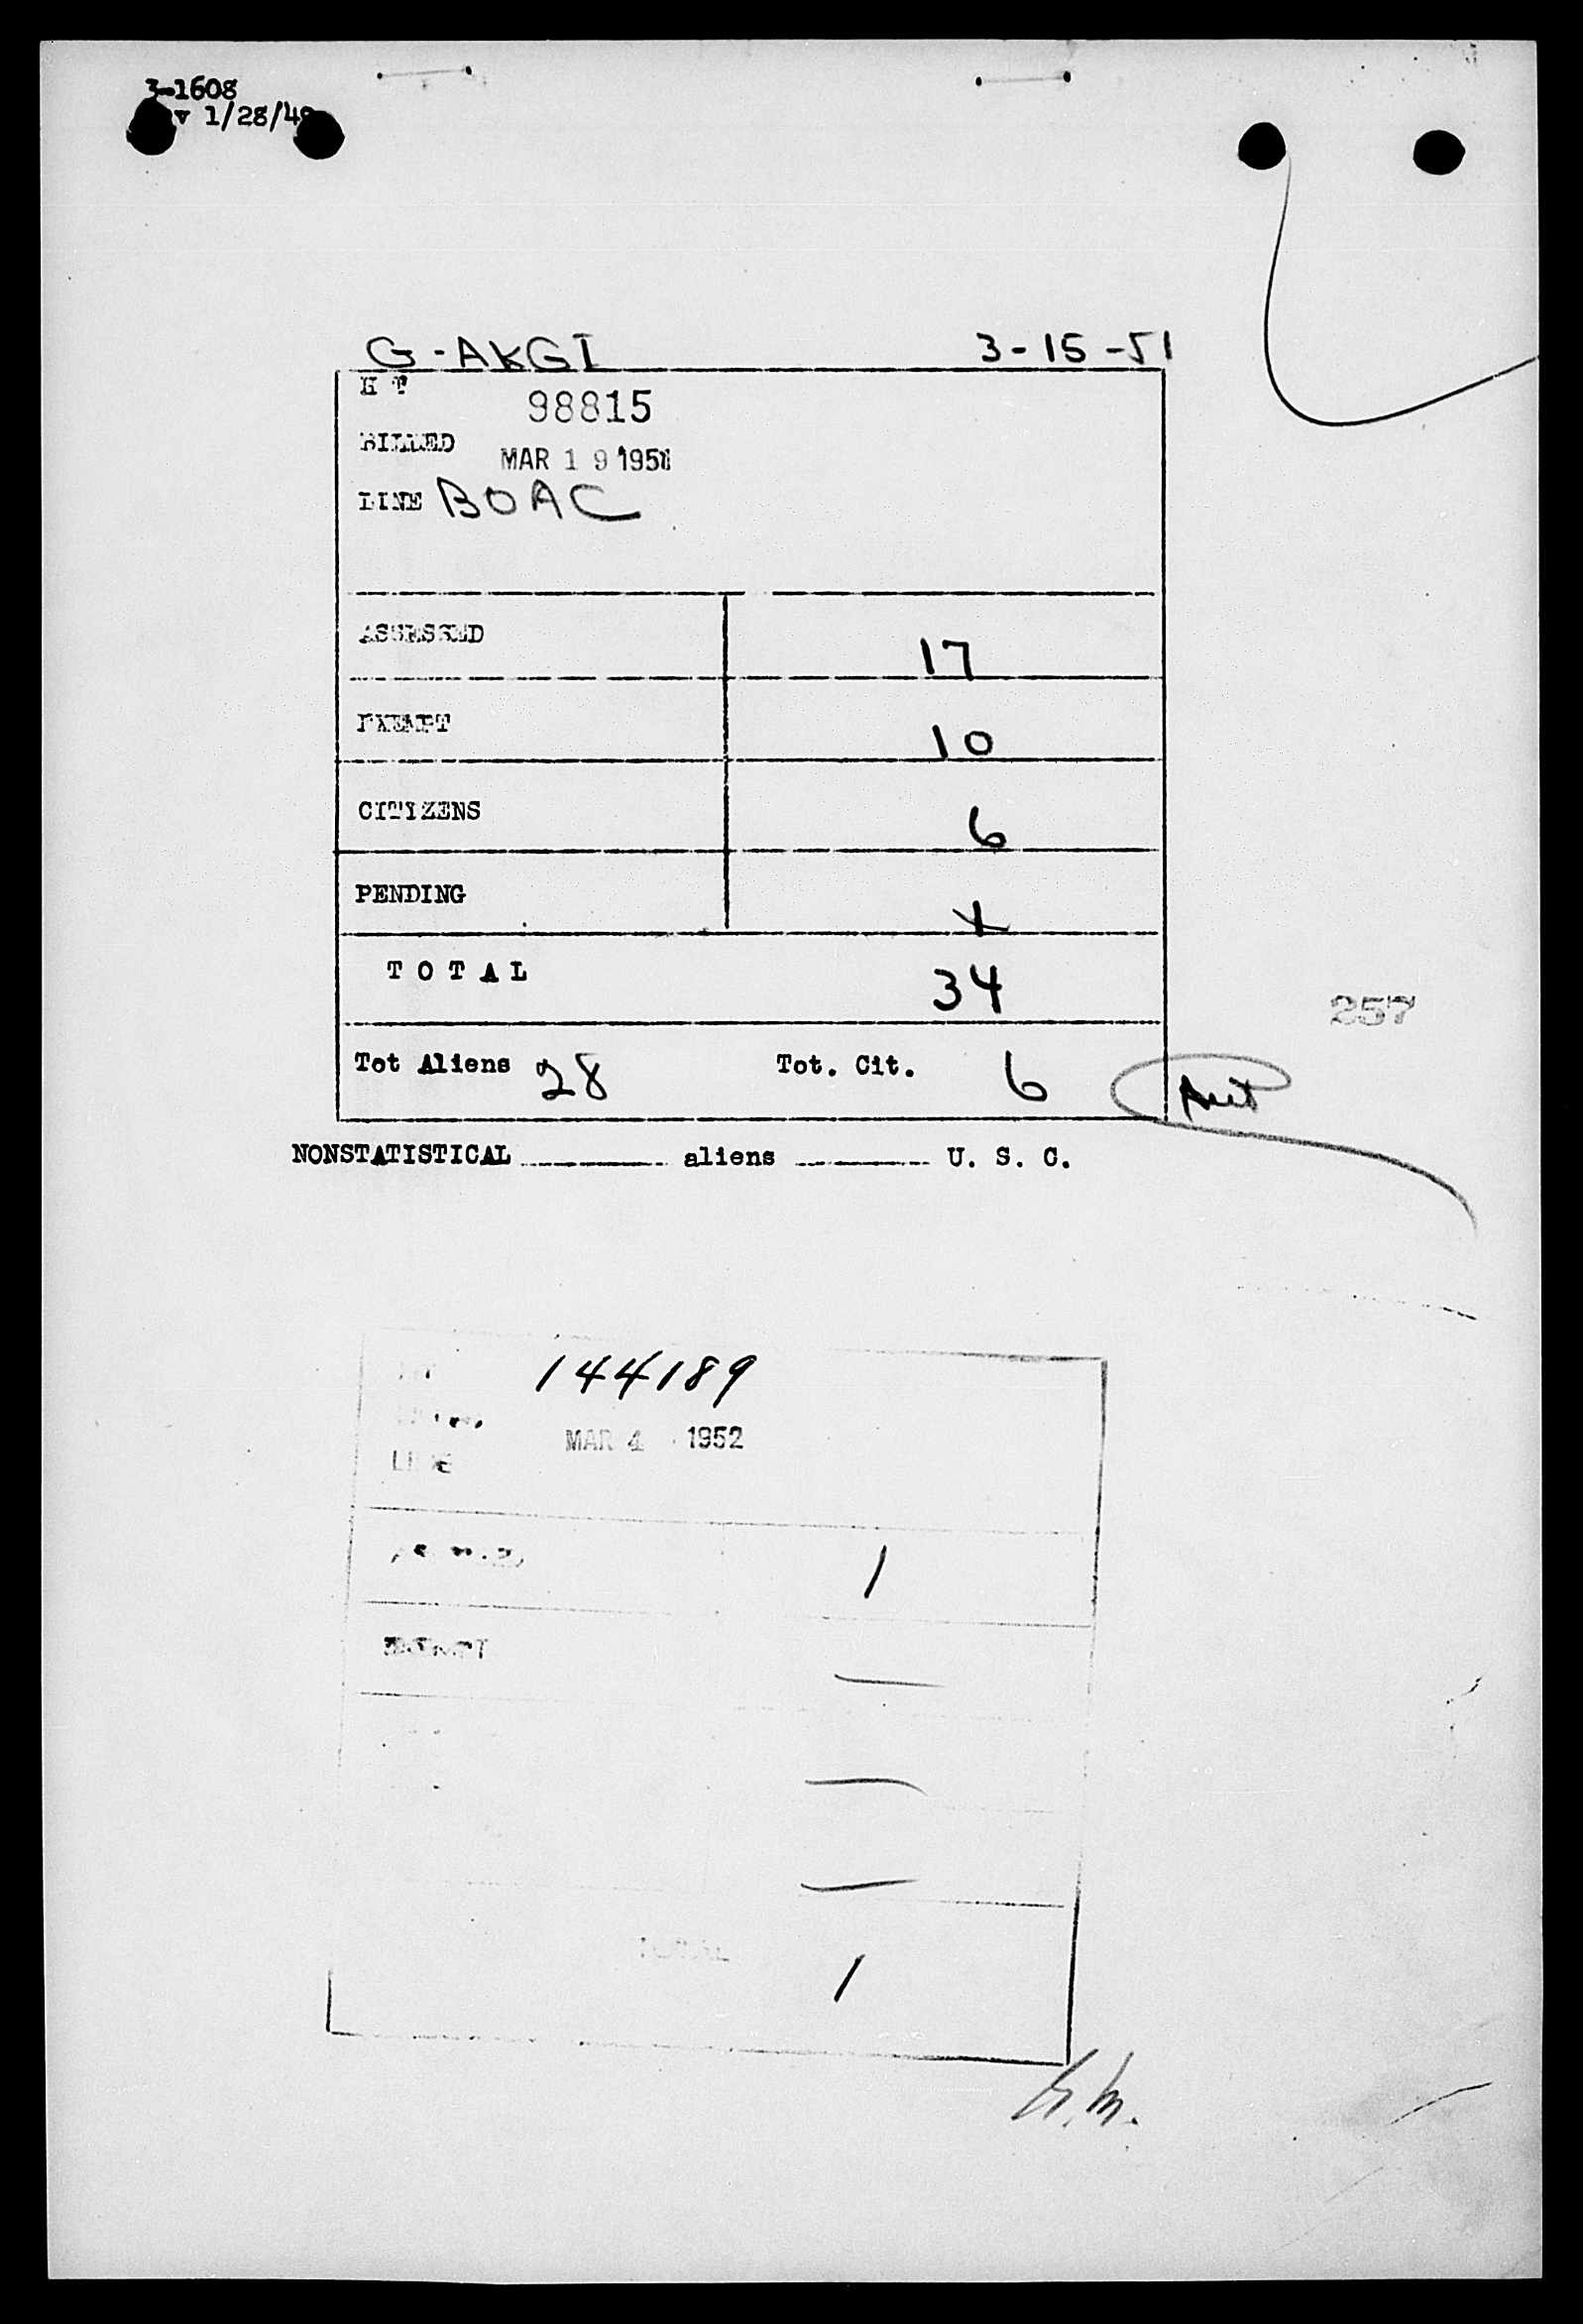 3-1608
1/28/48
G-AKGI 3-15-51
H T 98815
BILLED MAR 19 1951
LINE BOAC
ASSESSED 17
EXEMPT 10
CITIZENS 6
PENDING
TOTAL 34
257
Tot Aliens 28 Tot. Cit. 6
NONSTATISTICAL aliens U. S. C.
144189
MAR 4 1952
LINE
ASSESSED 1
EXEMPT —
—
—
TOTAL 1